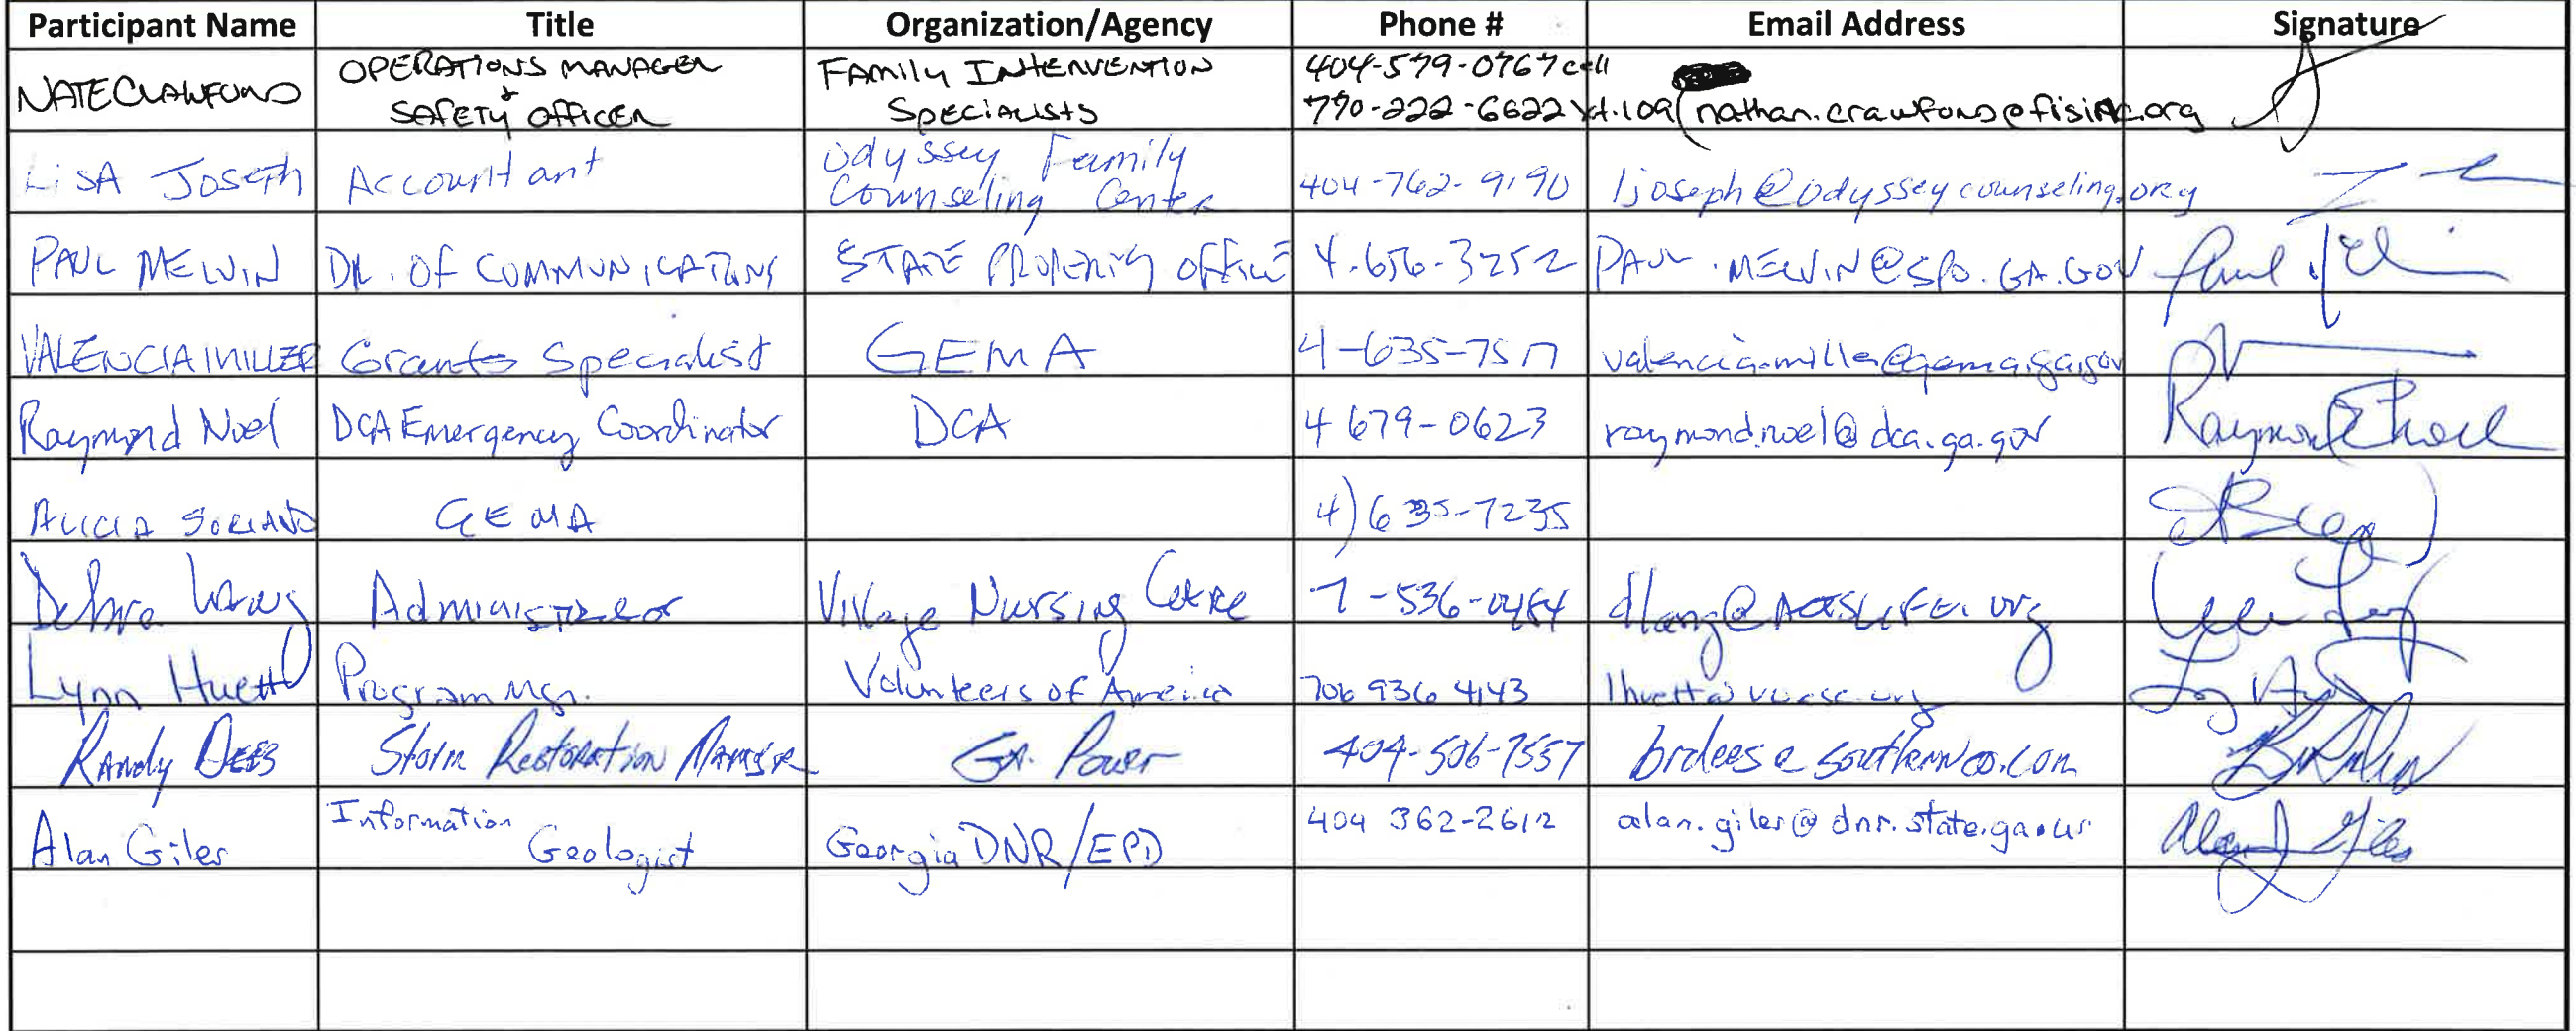 Participant Name Title Organization/Agency Phone # Email Address Signature
NATE CRAWFORD OPERATIONS MANAGER + SAFETY OFFICER FAMILY INTERVENTION SPECIALISTS 404-579-0767 cell 770-222-6622 xt.109 nathan.crawford@fisinc.org
LISA Joseph Accountant Odyssey Family Counseling Center 404-762-9190 ljoseph@odysseycounseling.org
PAUL MELVIN DIR. OF COMMUNICATIONS STATE PROPERTY OFFICE 4-656-3252 PAUL.MELVIN@SPO.GA.GOV
VALENCIA MILLER Grants Specialist GEMA 4-635-7517 valencia.miller@gema.ga.gov
Raymond Noel DCA Emergency Coordinator DCA 4 679-0623 raymond.noel@dca.ga.gov
ALICIA SORIANO GEMA 4) 635-7235
Debra Lang Administrator Village Nursing 7-536- dlang@ACTSLIFE.org
Lynn Huett Program Mgr. Volunteers of America 706 936 4143
RANDY DEES Storm Restoration Manager GA. Power 404-506-7557 brdees@southernco.com
Alan Giles Information Geologist Georgia DNR/EPD 404 362-2612 alan.giles@dnr.state.ga.us